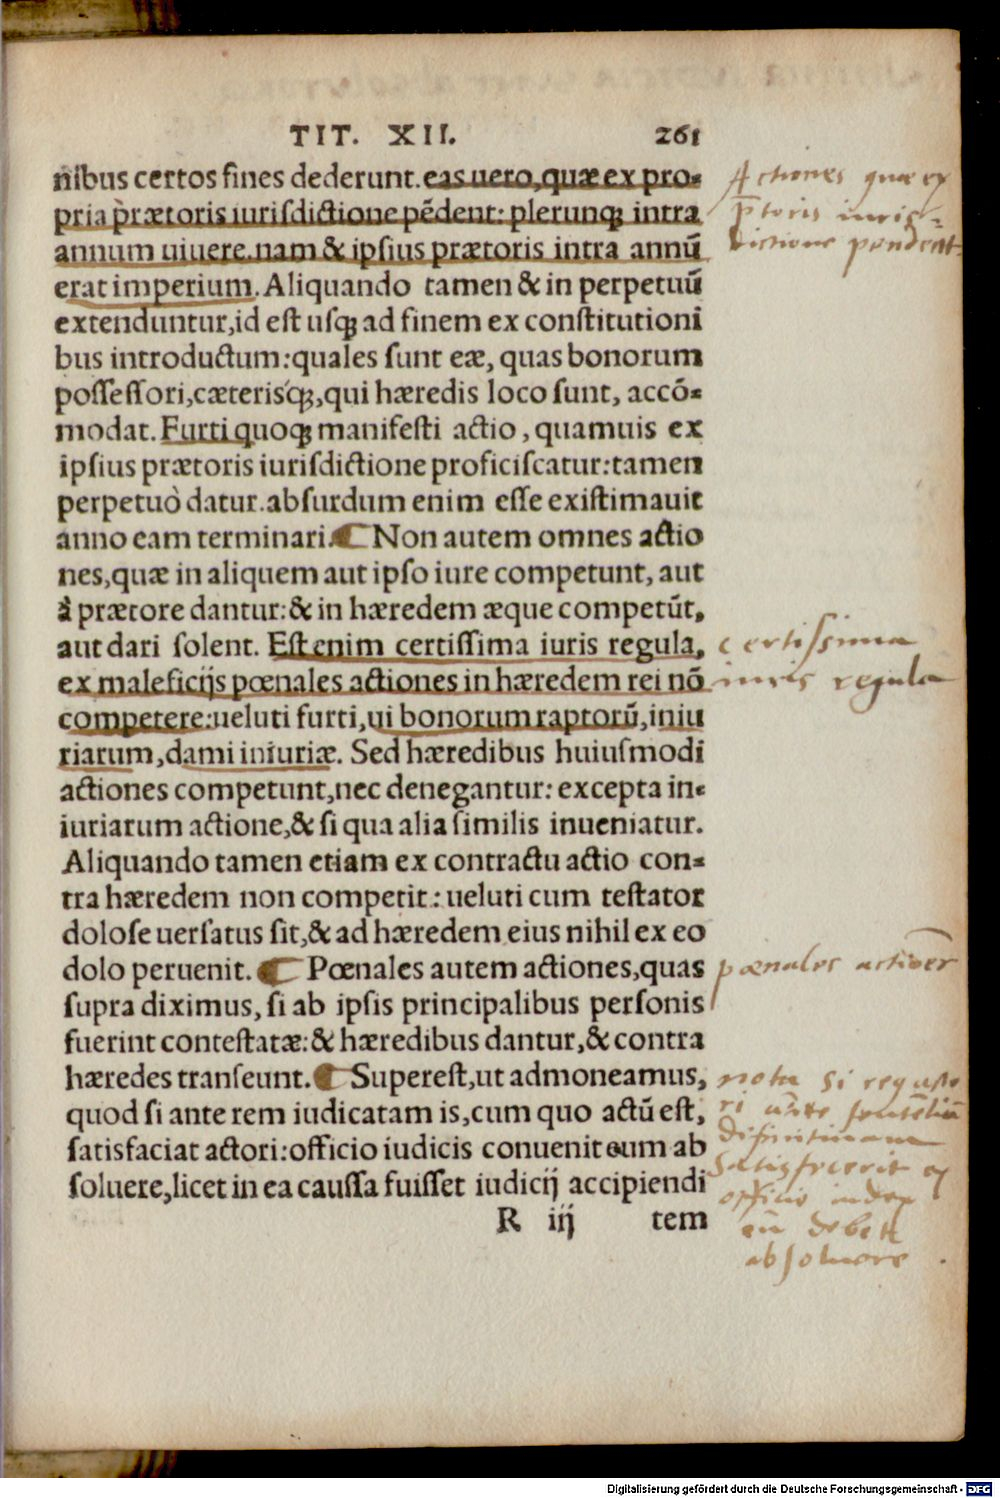 TIT. XII. 261
nibus certos fines dederunt. eas uero, quæ ex pro-
pria prætoris iurisdictione pēdent: plerunq; intra
annum uiuere. nam & ipsius prætoris intra annū
erat imperium. Aliquando tamen & in perpetuū
extenduntur, id est usq; ad finem ex constitutioni
bus introductum: quales sunt eæ, quas bonorum
possessori, cæterisq́;, qui hæredis loco sunt, accō-
modat. Furti quoq; manifesti actio, quamuis ex
ipsius prætoris iurisdictione proficiscatur: tamen
perpetuò datur. absurdum enim esse existimauit
anno eam terminari. ¶ Non autem omnes actio
nes, quæ in aliquem aut ipso iure competunt, aut
à prætore dantur: & in hæredem æque competūt,
aut dari solent. Est enim certissima iuris regula,
ex maleficijs pœnales actiones in hæredem rei nō
competere: ueluti furti, ui bonorum raptorū, iniu
riarum, dami iniuriæ. Sed hæredibus huiusmodi
actiones competunt, nec denegantur: excepta in-
iuriarum actione, & si qua alia similis inueniatur.
Aliquando tamen etiam ex contractu actio con-
tra hæredem non competit: ueluti cum testator
dolose uersatus sit, & ad hæredem eius nihil ex eo
dolo peruenit. ¶ Pœnales autem actiones, quas
supra diximus, si ab ipsis principalibus personis
fuerint contestatæ: & hæredibus dantur, & contra
hæredes transeunt. ¶ Superest, ut admoneamus,
quod si ante rem iudicatam is, cum quo actū est,
satisfaciat actori: officio iudicis conuenit eum ab
soluere, licet in ea caussa fuisset iudicij accipiendi
R iij tem
Actiones quæ ex
p̄toris iuris-
dictione pendent
certissima
iuris regula
pœnales actiones
nota si
ri ante sententiā
difinitiuam
satisfecerit ex
officio iudex
eū debet
absoluere
Digitalisierung gefördert durch die Deutsche Forschungsgemeinschaft - DFG